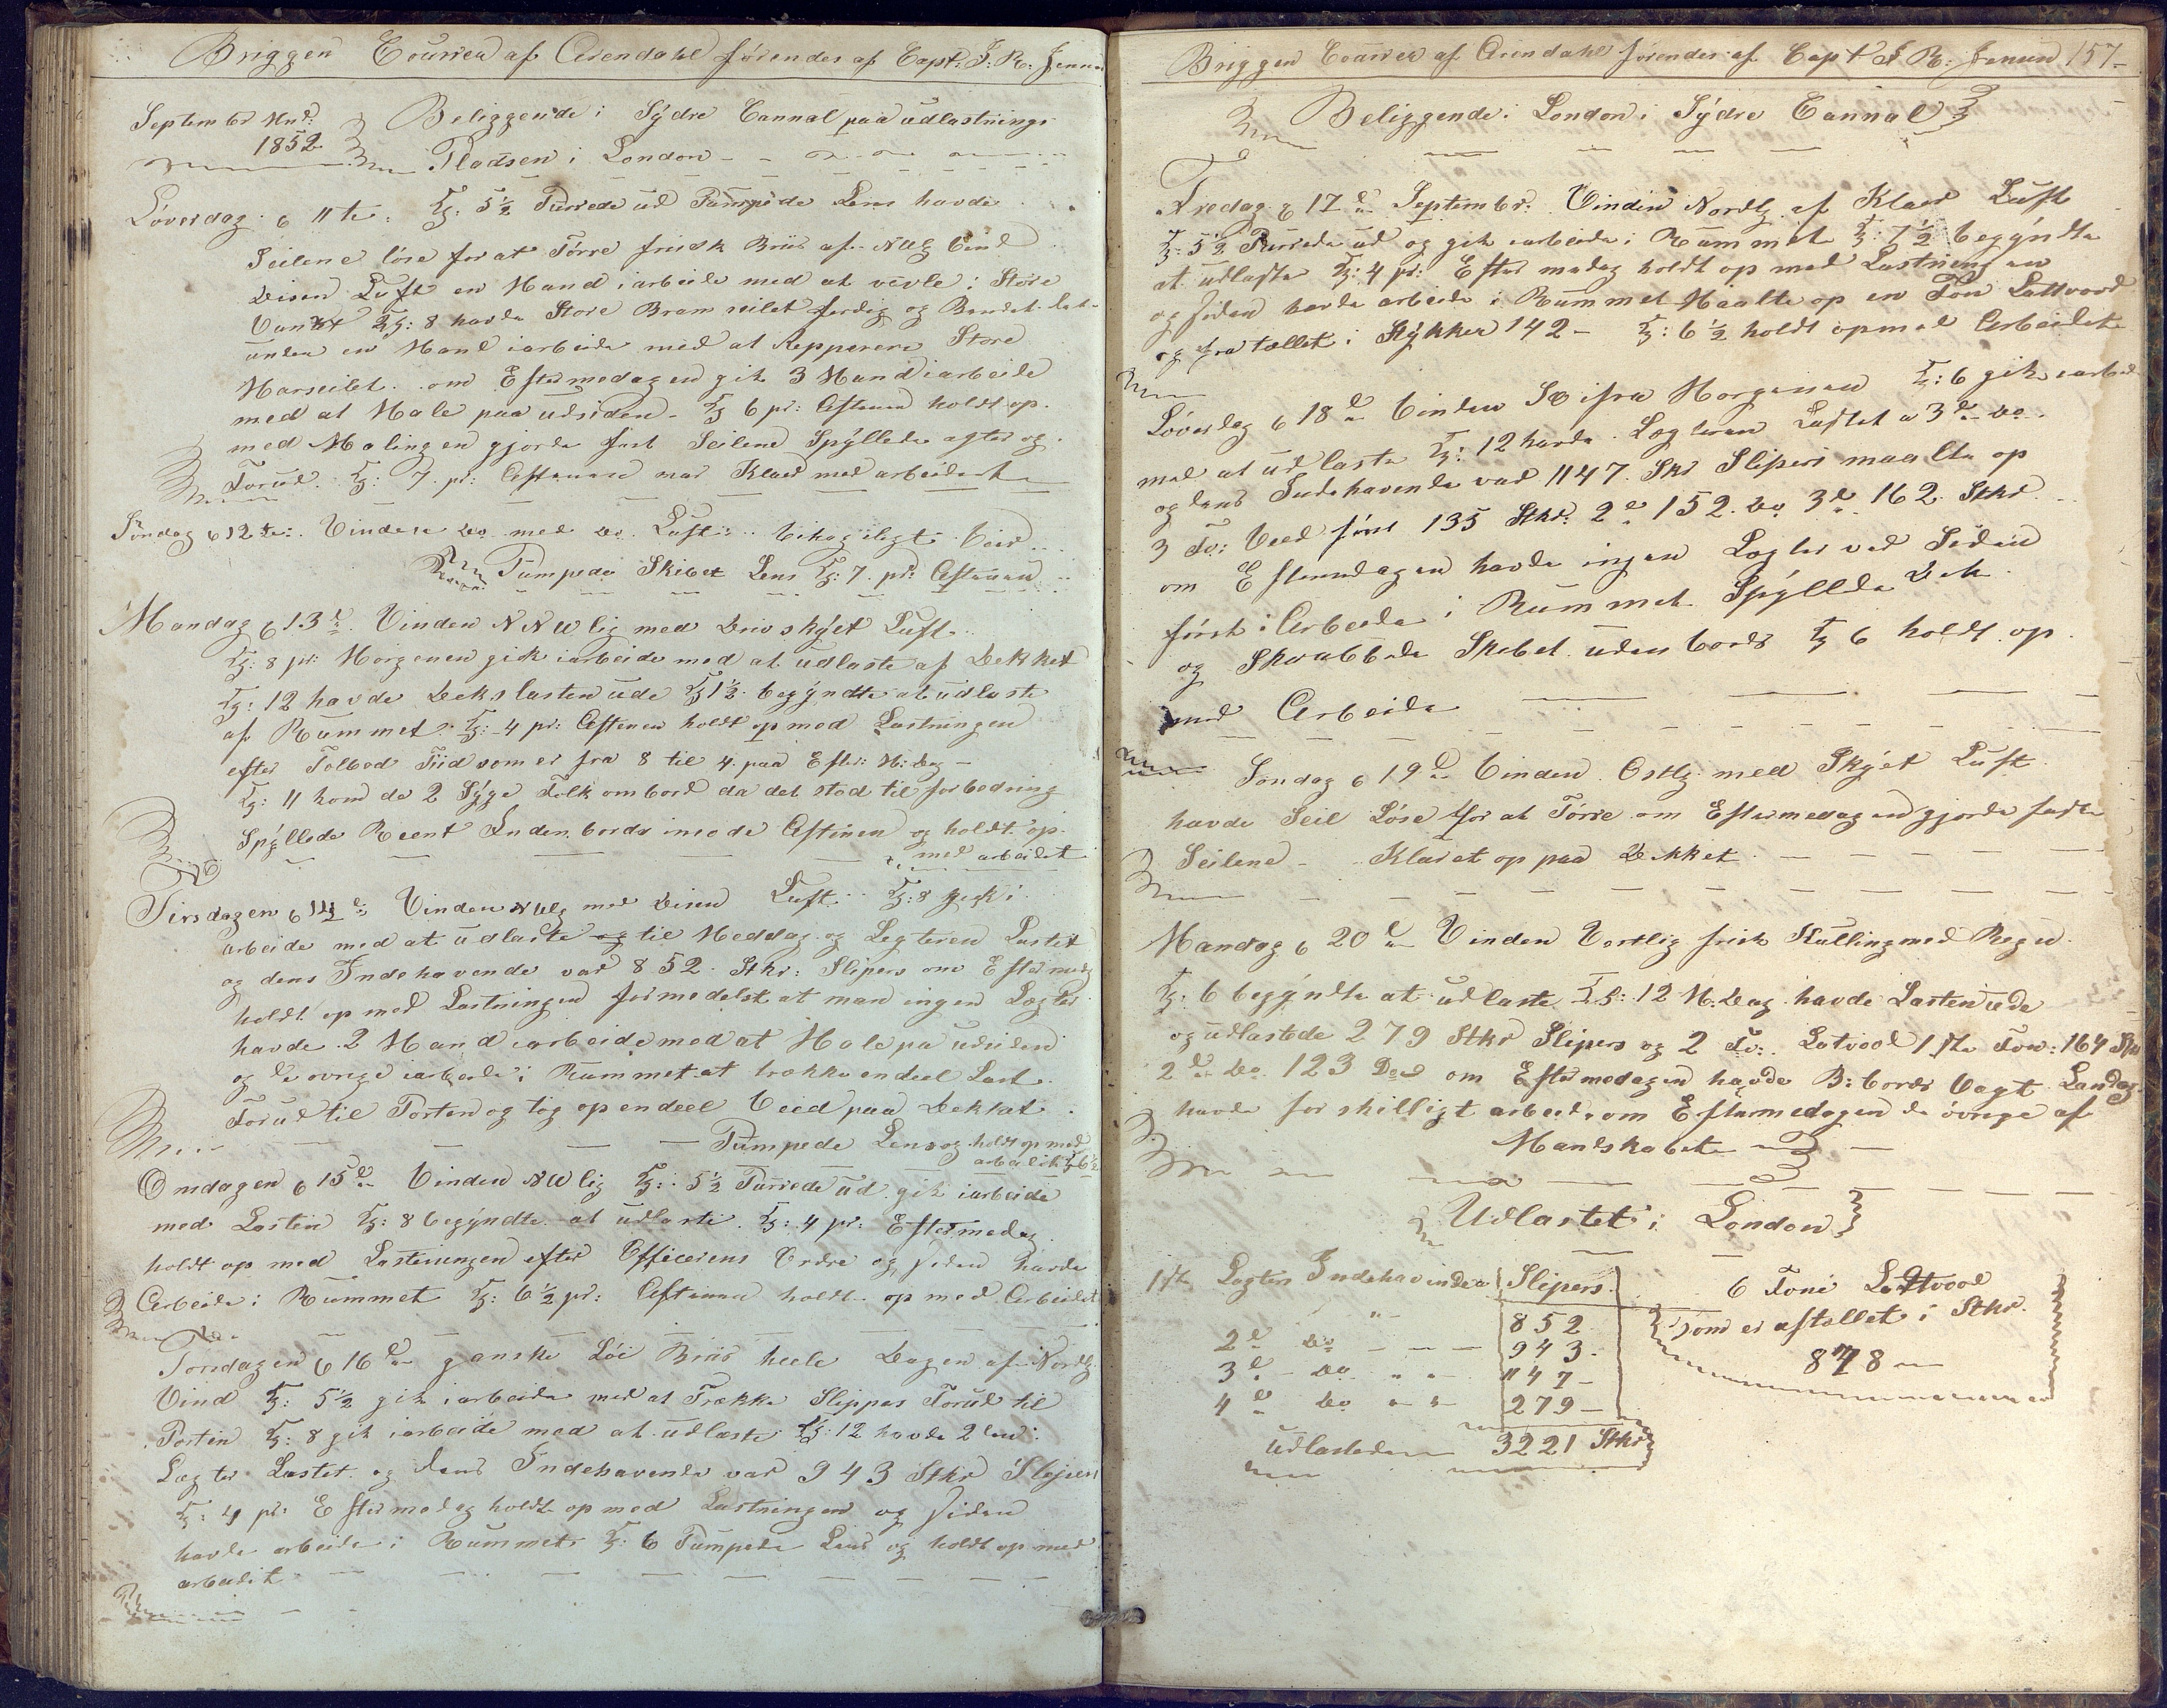 Briggen Courier af Arendahl förendes af Capt: J: R: Jensen
September Mnd: Beliggende i Sÿdre Cannal paa udlastnings
1852 Pladsen i London
Löverdag d 11te: Kl: 5½ Purrede ud Pumpede Lens havde
Seilene löse for at Törre frisk Briis af NWlg Vind
Diisen Luft en Mand i arbeide med at vevle i Store
Vantet Kl: 8 havde Store Bramseilet ferdig og
unden en Mand i arbeide med at Repperere Store
Marseilet. om Eftermedagen gik 3 Mand i arbeide
med at Male paa udsiden - Kl 6 pr: Aftenen holdt op
med Malingen gjorde fast Seilene Spÿllede agter og
Forud. Kl: 7 pr: Aftenen var Klaer med arbeidet
Söndag d 12te: Vinden Do med Do Luft behageligt Veir
Pumpede Skibet Lens Kl: 7 pr: Aftenen
Mandag d 13de Vinden NNWlig med Drivskÿet Luft
Kl: 8 pr: Morgenen gik i arbeide med at udlaste af Dekket
Kl: 12 havde Dekslasten ude Kl 1½ begÿndte at udlaste
af Rummet Kl: 4 pr: Aftenen holdt op med Lastningen
efter Tolbod Tiid som er fra 8 til 4 paa Efter: M: Dag -
Kl: 11 kom de 2 Sÿge Folk ombord da det stod til forbedring
Spÿllede Reent Inden bords imode Aftenen og holdt op
med arbeidet
Tirsdagen d 14de Vinden NWlg med Diisen Luft Kl: 8 gik i
arbeide med at udlaste og til Meddag og Legteren Lastet
og dens Indehavende var 852 Stkr: Slipers om Eftermedg
holdt op med Lastningen formedelst at man ingen Legter
havde. 2 Mand i arbeide med at Male paa udsiden
og de övrige i arbeide i Rummet at trække en deel Last
Forud til Porten og tog op en deel Veed paa Dekket
Pumpede Lens og holdt op med
arbeidet Kl 6½
Onsdagen d 15de Vinden NWlig Kl: 5½ Purrede ud gik i arbeide
med Lasten Kl: 8 begÿndte at udlaste. Kl: 4 pr: Eftermedag
holdt op med Lastningen efter Officerens Ordre og siden havde
Arbeide i Rummet Kl: 6½ pr: Aftenen holdt op med Arbeidet
Torsdagen d 16de ganske Löi Briis heele Dagen af Nordlg
Vind Kl: 5½ gik i arbeide med at Trække Slippers Forud til
Porten Kl: 8 gik i arbeide med at udlaste Kl: 12 havde 2den
Legter Lastet og dens Indehavende var 943 Stkr Slipers
Kl: 4 pr: Eftermedag holdt op med Lastningen og siden
havde arbeide i Rummet Kl: 6 Pumpede Lens og holdt op med
arbeidet
Briggen Courier af Arendahl förendes af Capt J R: Jensen 157
Beliggende i London i Sÿdre Cannal
Fredag d 17de September. Vinden Nordlg af Klaer Luft
Kl: 5½ Purrede ud og gik i arbeide i Rummet Kl: 7½ begÿndte
at udlaste Kl: 4 pr: Eftermedag holdt op med Lastningen
og siden havde arbeide i Rummet Maalte op en Fon Lattvood
og fratællet i Stÿkker 142 - Kl: 6½ holdt op med Arbeidet
Löverdag d 18de Vinden SO ifra Morgenen Kl: 6 gik i arbeide
med at udlaste Kl: 12 havde Legteren Lastet a 3de Do
og dens Indehavende var 1147 Stkr Slipers maalte op
3 Fv: Veed först 135 Stkr: 2de 152 Do 3de 162 Stkr
om Eftermedagen havde ingen Legter ved Siden
först i Arbeide i Rummet Spÿllede Dek
og Skrabbede Skibet udenbords Kl 6 holdt op
med Arbeide
Söndag d 19de Vinden Ostlg med Skÿet Luft
havde Seil Löse for at Törre om Eftermedagen gjorde faste
Seilene - Klaret op paa Dekket
Mandag d 20de Vinden Vestlig frisk Kulling med Regn
Kl: 6 begÿndte at udlaste Kl: 12 M: Dag havde Lasten ude
og udlastede 279 Stkr Slipers og 2 Fv: Latvood 1ste Fov: 164 Stkr
2de Do 123 Do om Eftermedagen havde B: bords Vagt Landlov
havde forskilligt arbeide om Eftermedagen de övrige af
Mandskabet
Udlastet i London
1ste Legters Indehavende Slipers 6 Foni Lattvood
" 852 som er aftællet i Stkr.
2de Do 943 - 878
3de Do " " 1147 -
4de Do " " 279 -
Udlastede 3221 Stkr